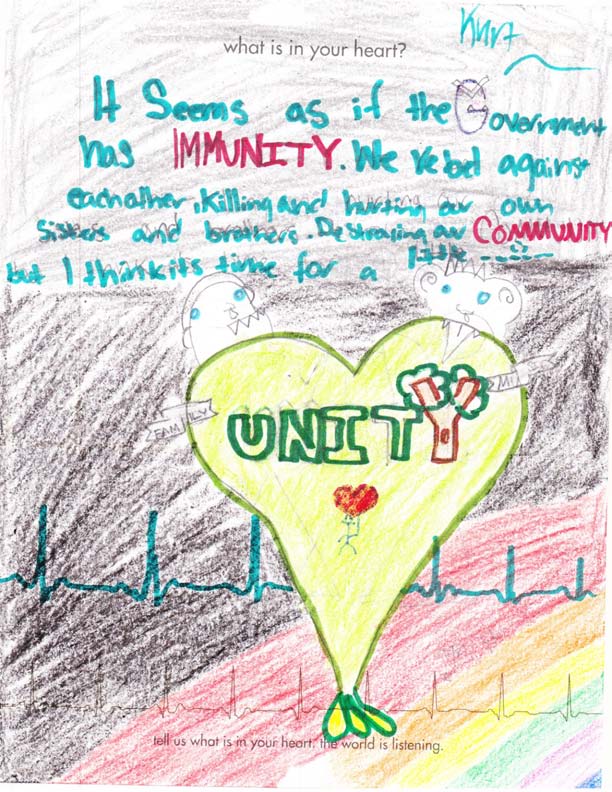 what is in your heart?
Kurt
It Seems as if the Government
has IMMUNITY. We rebel against
eachother, Killing and hurting our own
Sisters and brothers. Destroying our COMMUNITY
but I think it's time for a little -----
FAMILY
UNITY
tell us what is in your heart. the world is listening.